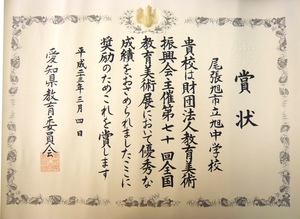 賞状
尾張旭市立旭中学校
貴校は財団法人教育美術
振興会主催第七十回全国
教育美術展において優秀な
成績をおさめられましたここに
奨励のためこれを賞します
平成二三年三月四日
愛知県教育委員会